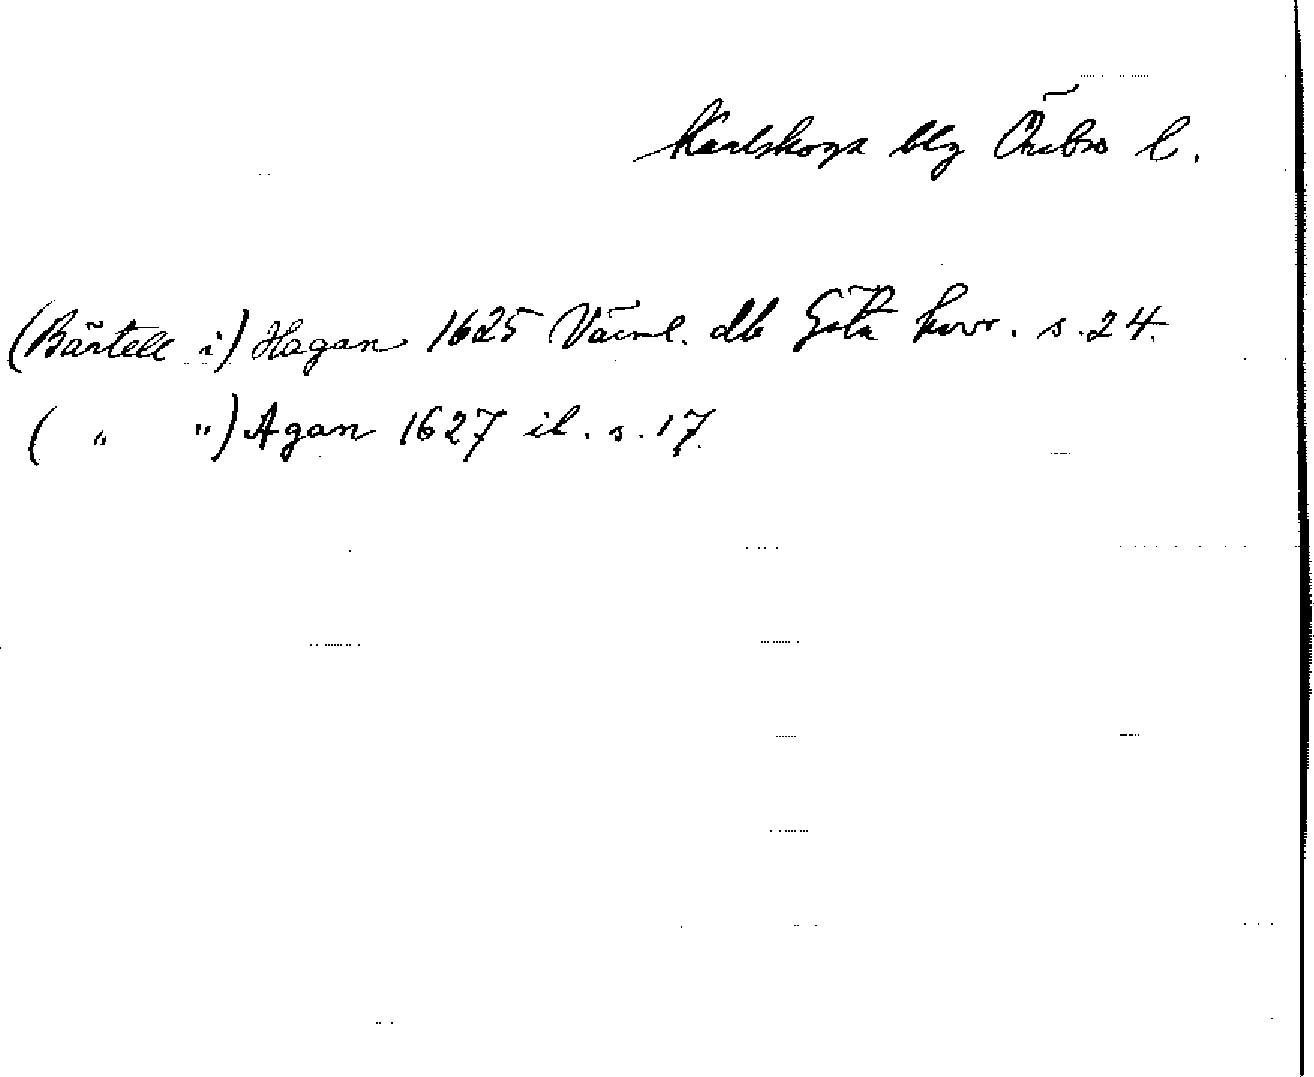 Karlskoga blg Örebro l.
(Bärtell i) Hagan 1625 Värml. db Göta hovr. s. 24.
( " ") Agan 1627 ib. s. 17.